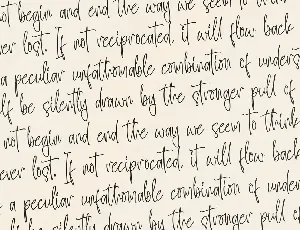 not begin and end the way we seem to think
ever lost. If not reciprocated, it will flow back
a peculiar unfathomable combination of unders
lf be silently drawn by the stronger pull of
not begin and end the way we seem to think
ever lost. If not reciprocated, it will flow back
a peculiar unfathomable combination of under
lf be silently drawn by the stronger pull of